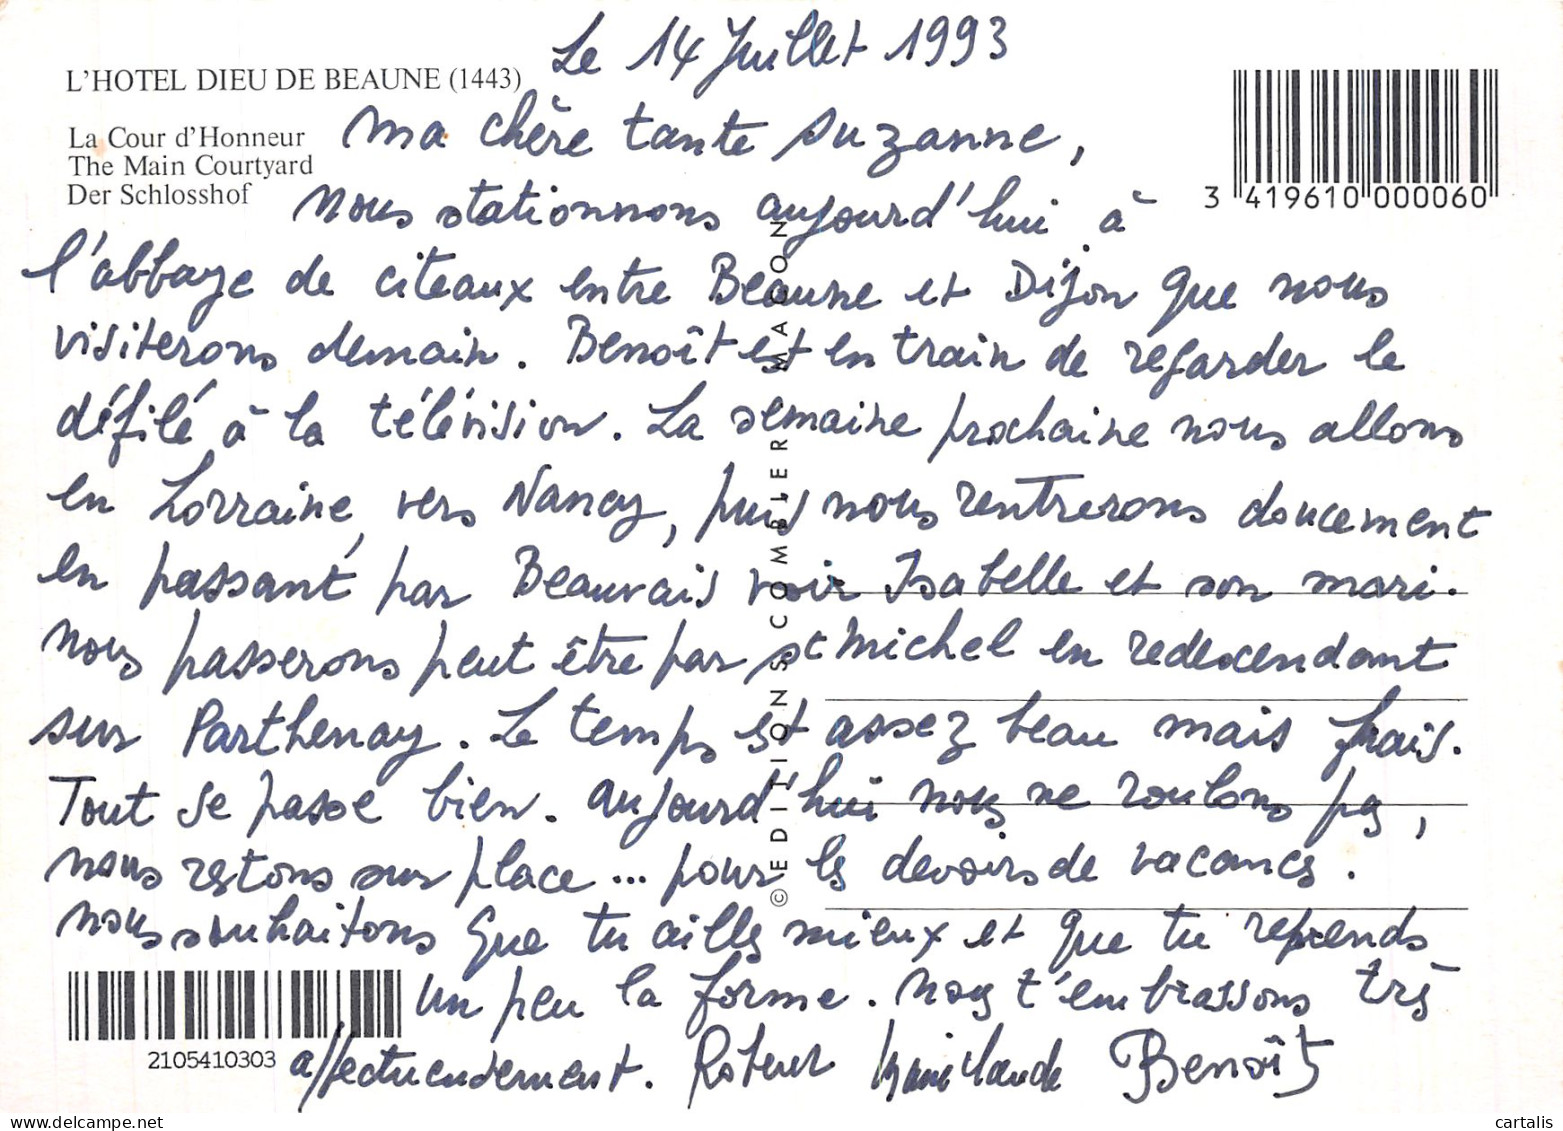 Le 14 Juillet 1993
L'HOTEL DIEU DE BEAUNE (1443)
La Cour d'Honneur
The Main Courtyard
Der Schlosshof
3 419610 000060
Ma chère tante Suzanne,
Nous stationnons aujourd'hui à
l'abbaye de citeaux entre Beaune et Dijon que nous
visiterons demain. Benoît est en train de regarder le
défilé à la télévision. La semaine prochaine nous allons
en Lorraine, vers Nancy, puis nous rentrerons doucement
en passant par Beauvais voir Isabelle et son mari.
Nous passerons peut être par St Michel en redescendant
sur Parthenay. Le temps est assez beau mais frais.
Tout se passe bien. aujourd'hui nous ne roulons pas,
nous restons sur place... pour les devoirs de vacances.
Nous souhaitons que tu ailles mieux et que tu reprends
un peu la forme. Nous t'embrassons très
affectueusement. Robert Marie Claude Benoît
2105410303
© EDITIONS COMBIER MACON
cartalis